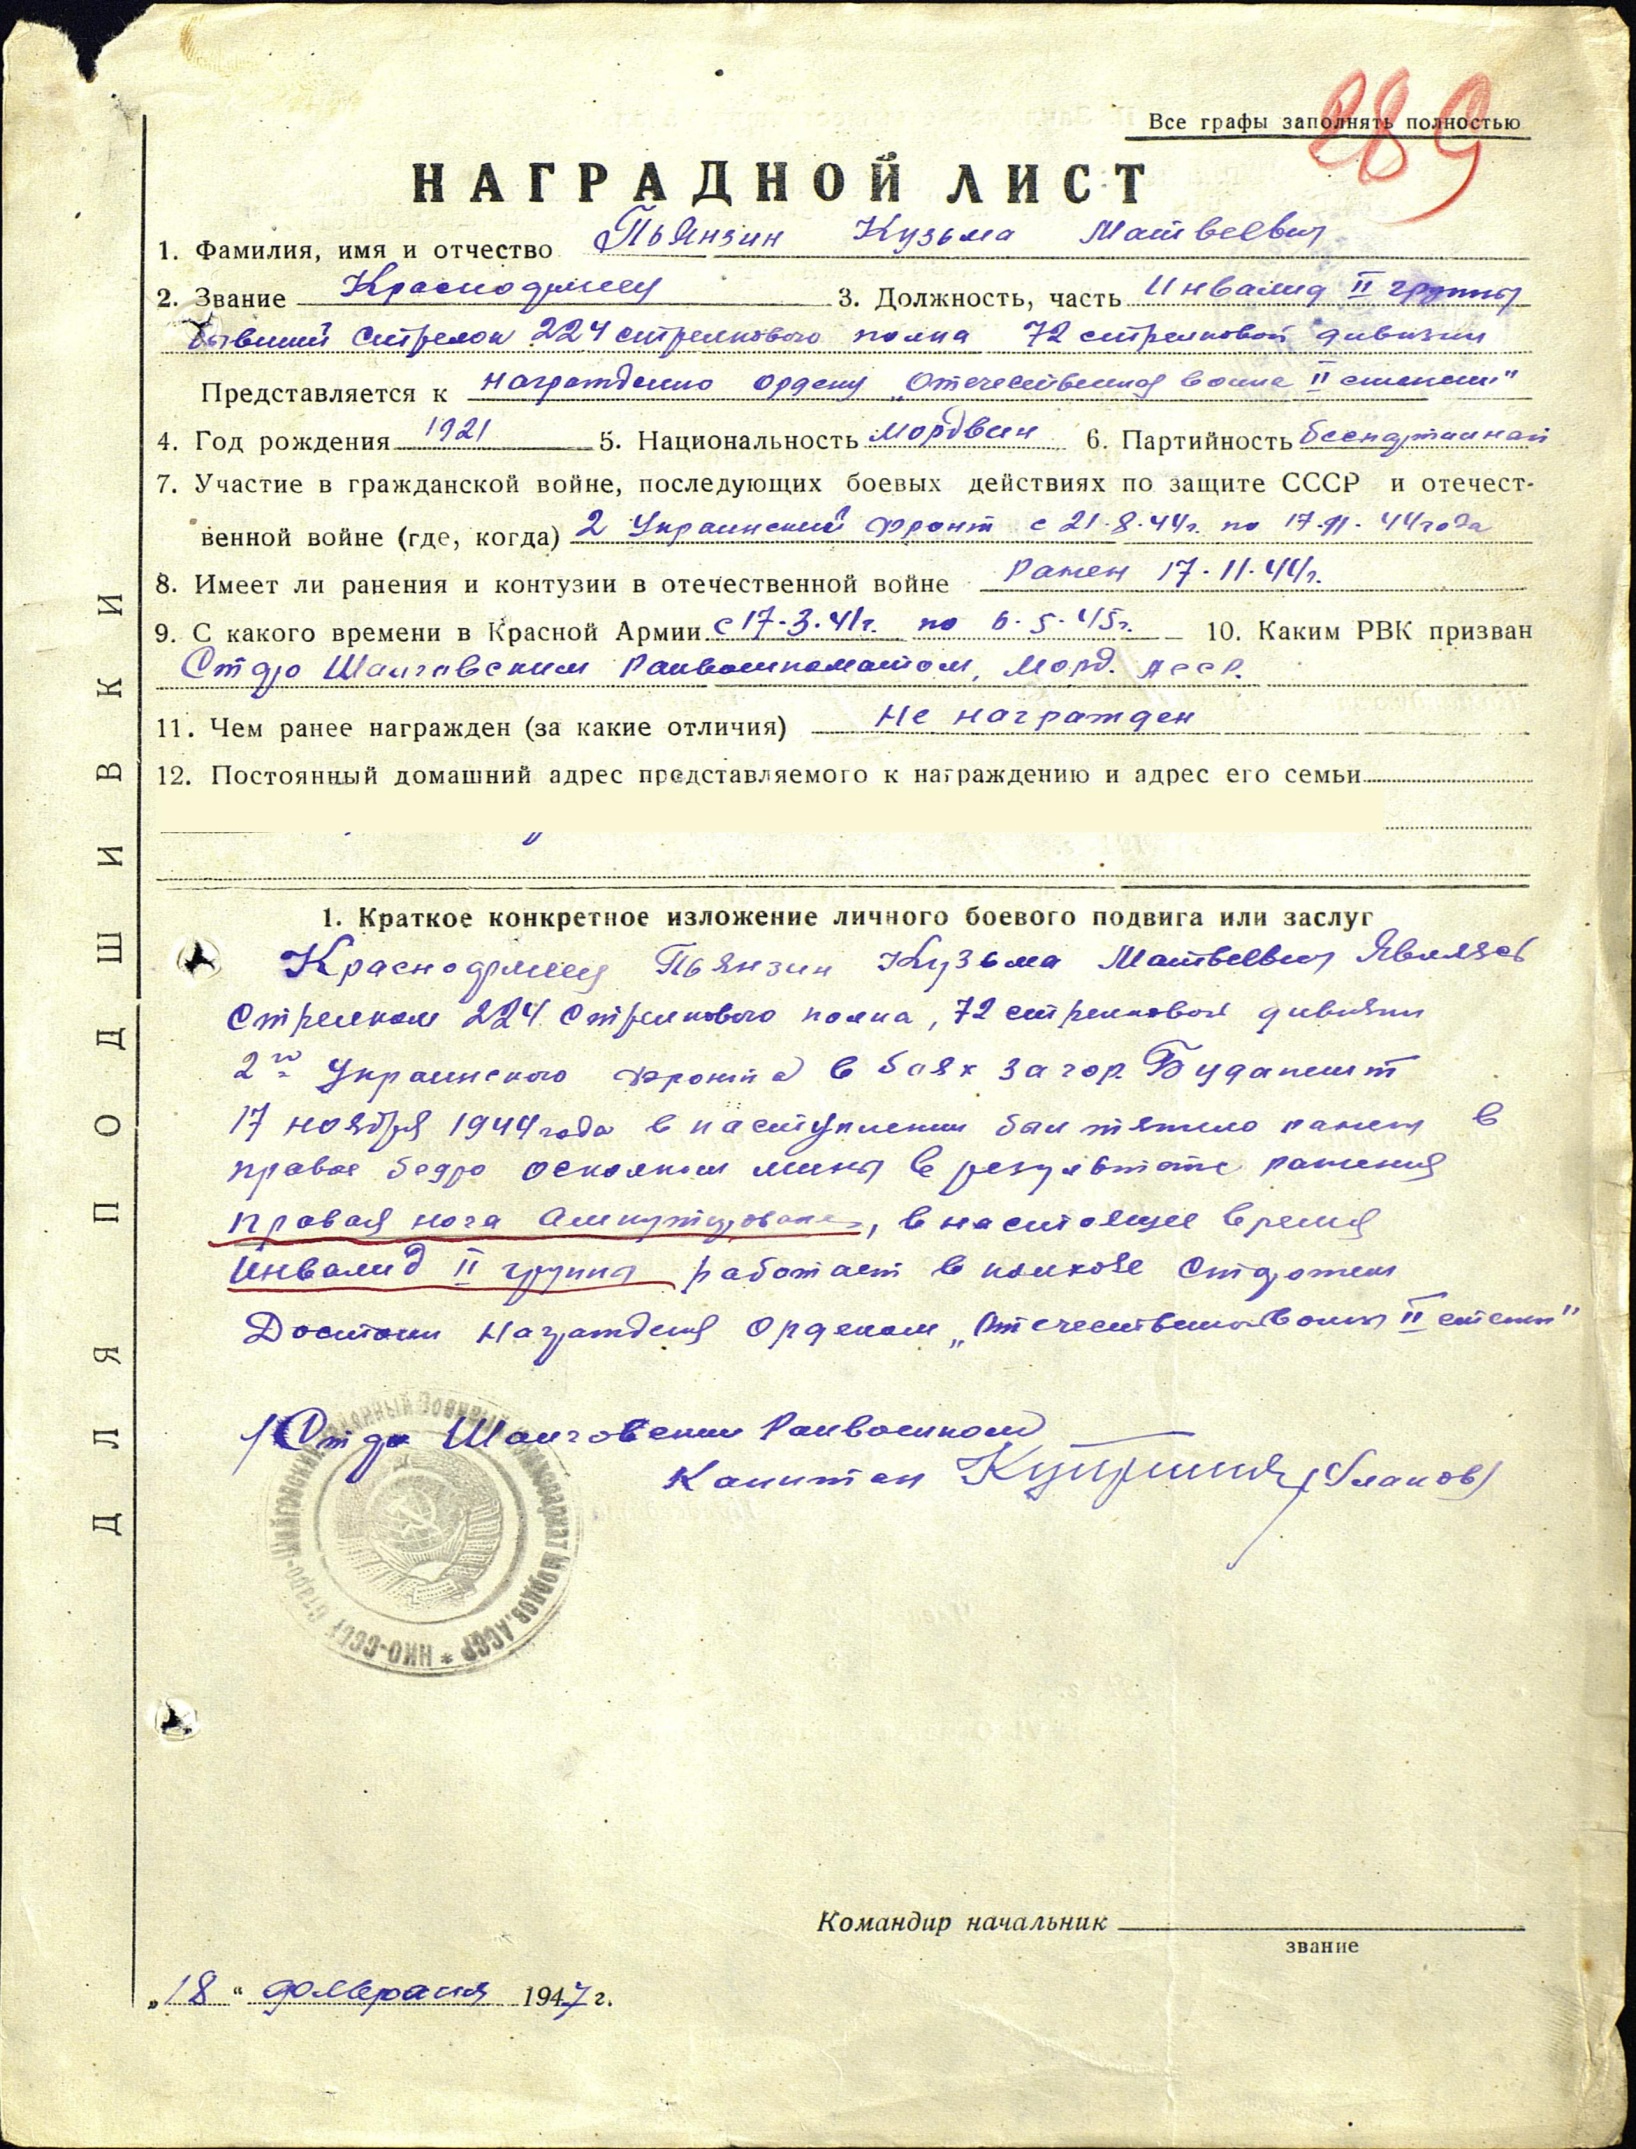 Все графы заполнять полностью
289
НАГРАДНОЙ ЛИСТ
1. Фамилия, имя и отчество Пьянзин Кузьма Матвеевич
2. Звание Красноармеец 3. Должность, часть Инвалид II группы
бывший стрелок 224 стрелкового полка 72 стрелковой дивизии
Представляется к награждению ордену „Отечественная война II степени"
4. Год рождения 1921 5. Национальность Мордвин 6. Партийность беспартийный
7. Участие в гражданской войне, последующих боевых действиях по защите СССР и отечест-
венной войне (где, когда) 2 Украинский фронт с 21.8.44г. по 17.11.44 года
8. Имеет ли ранения и контузии в отечественной войне Ранен 17.11.44г.
9. С какого времени в Красной Армии с 17.3.41г. по 6.5.45г. 10. Каким РВК призван
Старо Шайговским Райвоенкоматом, Морд. АССР.
11. Чем ранее награжден (за какие отличия) Не награжден
12. Постоянный домашний адрес представляемого к награждению и адрес его семьи
1. Краткое конкретное изложение личного боевого подвига или заслуг
Красноармеец Пьянзин Кузьма Матвеевич Являясь
стрелком 224 стрелкового полка, 72 стрелковой дивизии
2го Украинского фронта в боях за гор. Будапешт
17 ноября 1944 года в наступлении был тяжело ранен в
правое бедро осколком мины в результате ранения
правая нога ампутирована, в настоящее время
Инвалид II группы работает в колхозе сторожем
Достоин Награждения Орденом „Отечественная война II степени"
Старо Шайговский Райвоенком
Капитан (Уланов)
Старо-Шайговский Районный Военный Комиссариат Мордов. АССР * НКО-СССР
Командир начальник
звание
„18" февраля 1947 г.
ДЛЯ ПОДШИВКИ